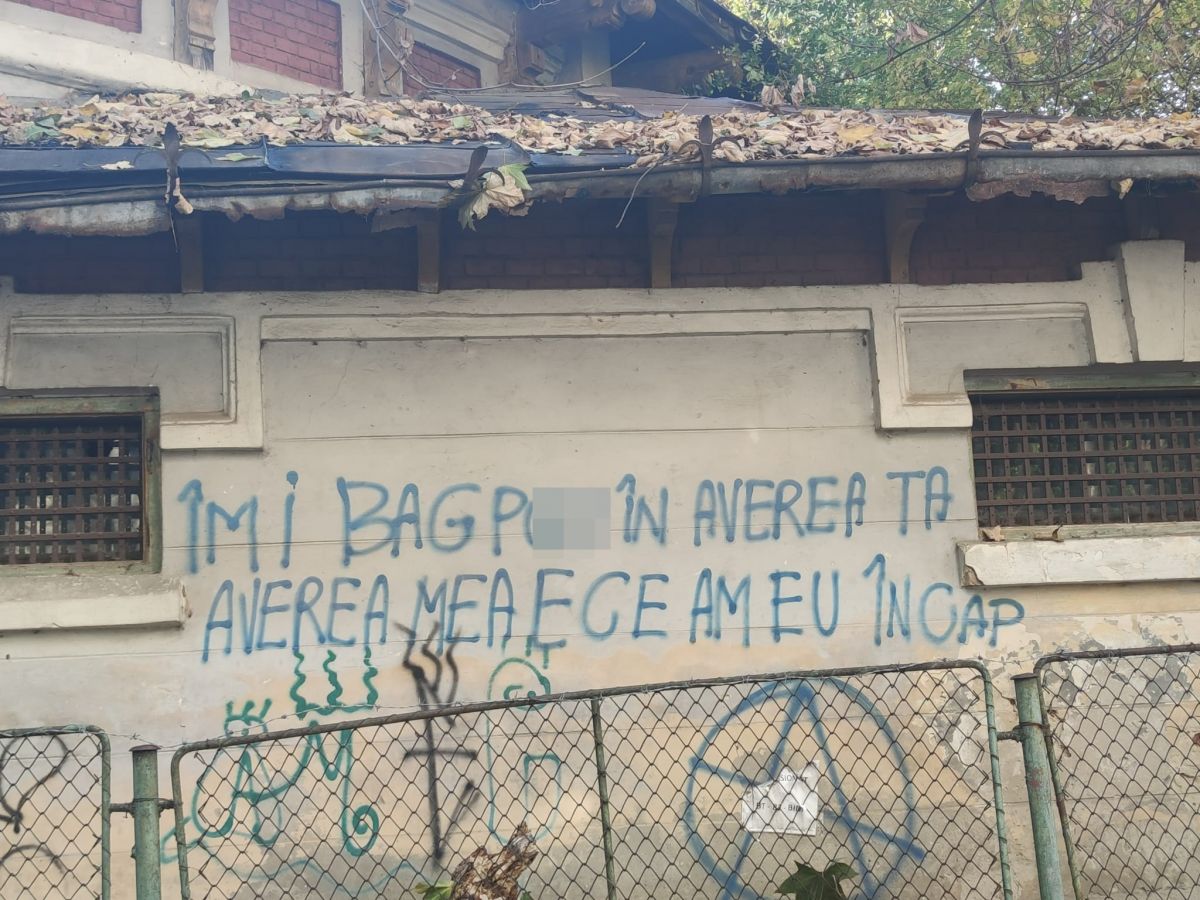 ÎMI BAG P ÎN AVEREA TA
AVEREA MEA E CE AM EU ÎN CAP
BT - XZ - BIN